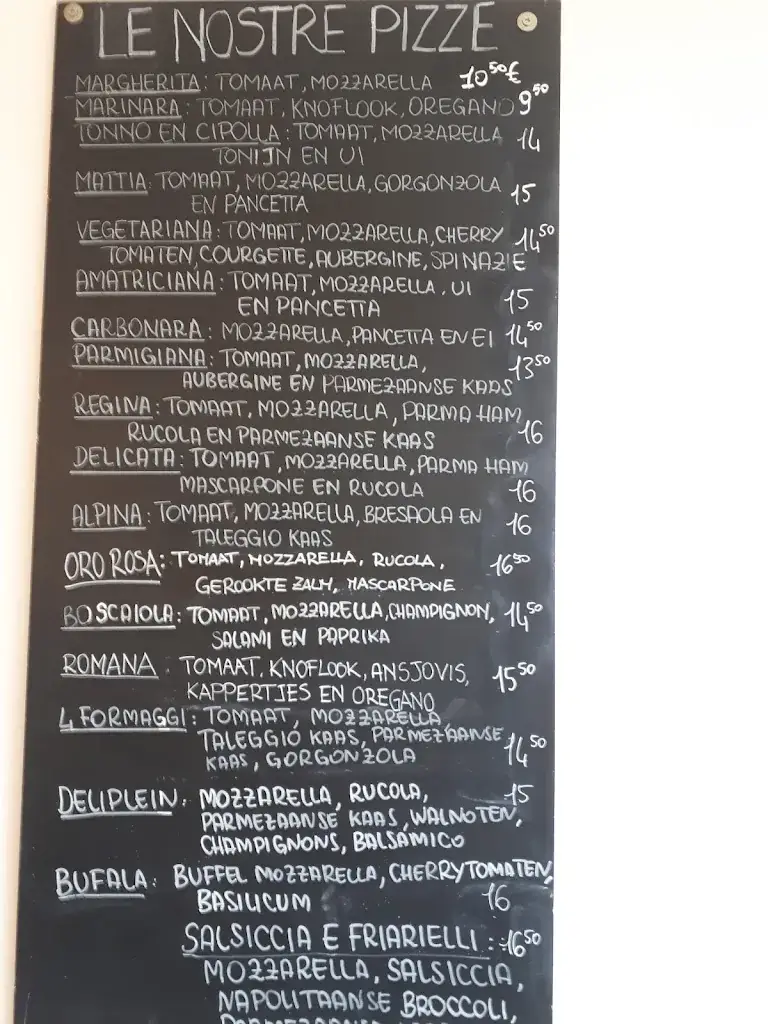 LE NOSTRE PIZZE
MARGHERITA: TOMAAT, MOZZARELLA 10⁵⁰€
MARINARA: TOMAAT, KNOFLOOK, OREGANO 9⁵⁰
TONNO EN CIPOLLA: TOMAAT, MOZZARELLA 14
TONIJN EN UI
MATTIA: TOMAAT, MOZZARELLA, GORGONZOLA 15
EN PANCETTA
VEGETARIANA: TOMAAT, MOZZARELLA, CHERRY 14⁵⁰
TOMATEN, COURGETTE, AUBERGINE, SPINAZIE
AMATRICIANA: TOMAAT, MOZZARELLA, UI
EN PANCETTA 15
CARBONARA: MOZZARELLA, PANCETTA EN EI 14⁵⁰
PARMIGIANA: TOMAAT, MOZZARELLA, 13⁵⁰
AUBERGINE EN PARMEZAANSE KAAS
REGINA: TOMAAT, MOZZARELLA, PARMA HAM
RUCOLA EN PARMEZAANSE KAAS 16
DELICATA: TOMAAT, MOZZARELLA, PARMA HAM
MASCARPONE EN RUCOLA 16
ALPINA: TOMAAT, MOZZARELLA, BRESAOLA EN 16
TALEGGIO KAAS
ORO ROSA: TOMAAT, MOZZARELLA, RUCOLA, 16⁵⁰
GEROOKTE ZALM, MASCARPONE
BOSCAIOLA: TOMAAT, MOZZARELLA, CHAMPIGNON, 14⁵⁰
SALAMI EN PAPRIKA
ROMANA: TOMAAT, KNOFLOOK, ANSJOVIS, 15⁵⁰
KAPPERTJES EN OREGANO
4 FORMAGGI: TOMAAT, MOZZARELLA,
TALEGGIO KAAS, PARMEZAANSE
KAAS, GORGONZOLA 14⁵⁰
DELIPLEIN: MOZZARELLA, RUCOLA, 15
PARMEZAANSE KAAS, WALNOTEN,
CHAMPIGNONS, BALSAMICO
BUFALA: BUFFEL MOZZARELLA, CHERRYTOMATEN,
BASILICUM 16
SALSICCIA E FRIARIELLI: 16⁵⁰
MOZZARELLA, SALSICCIA,
NAPOLITAANSE BROCCOLI,